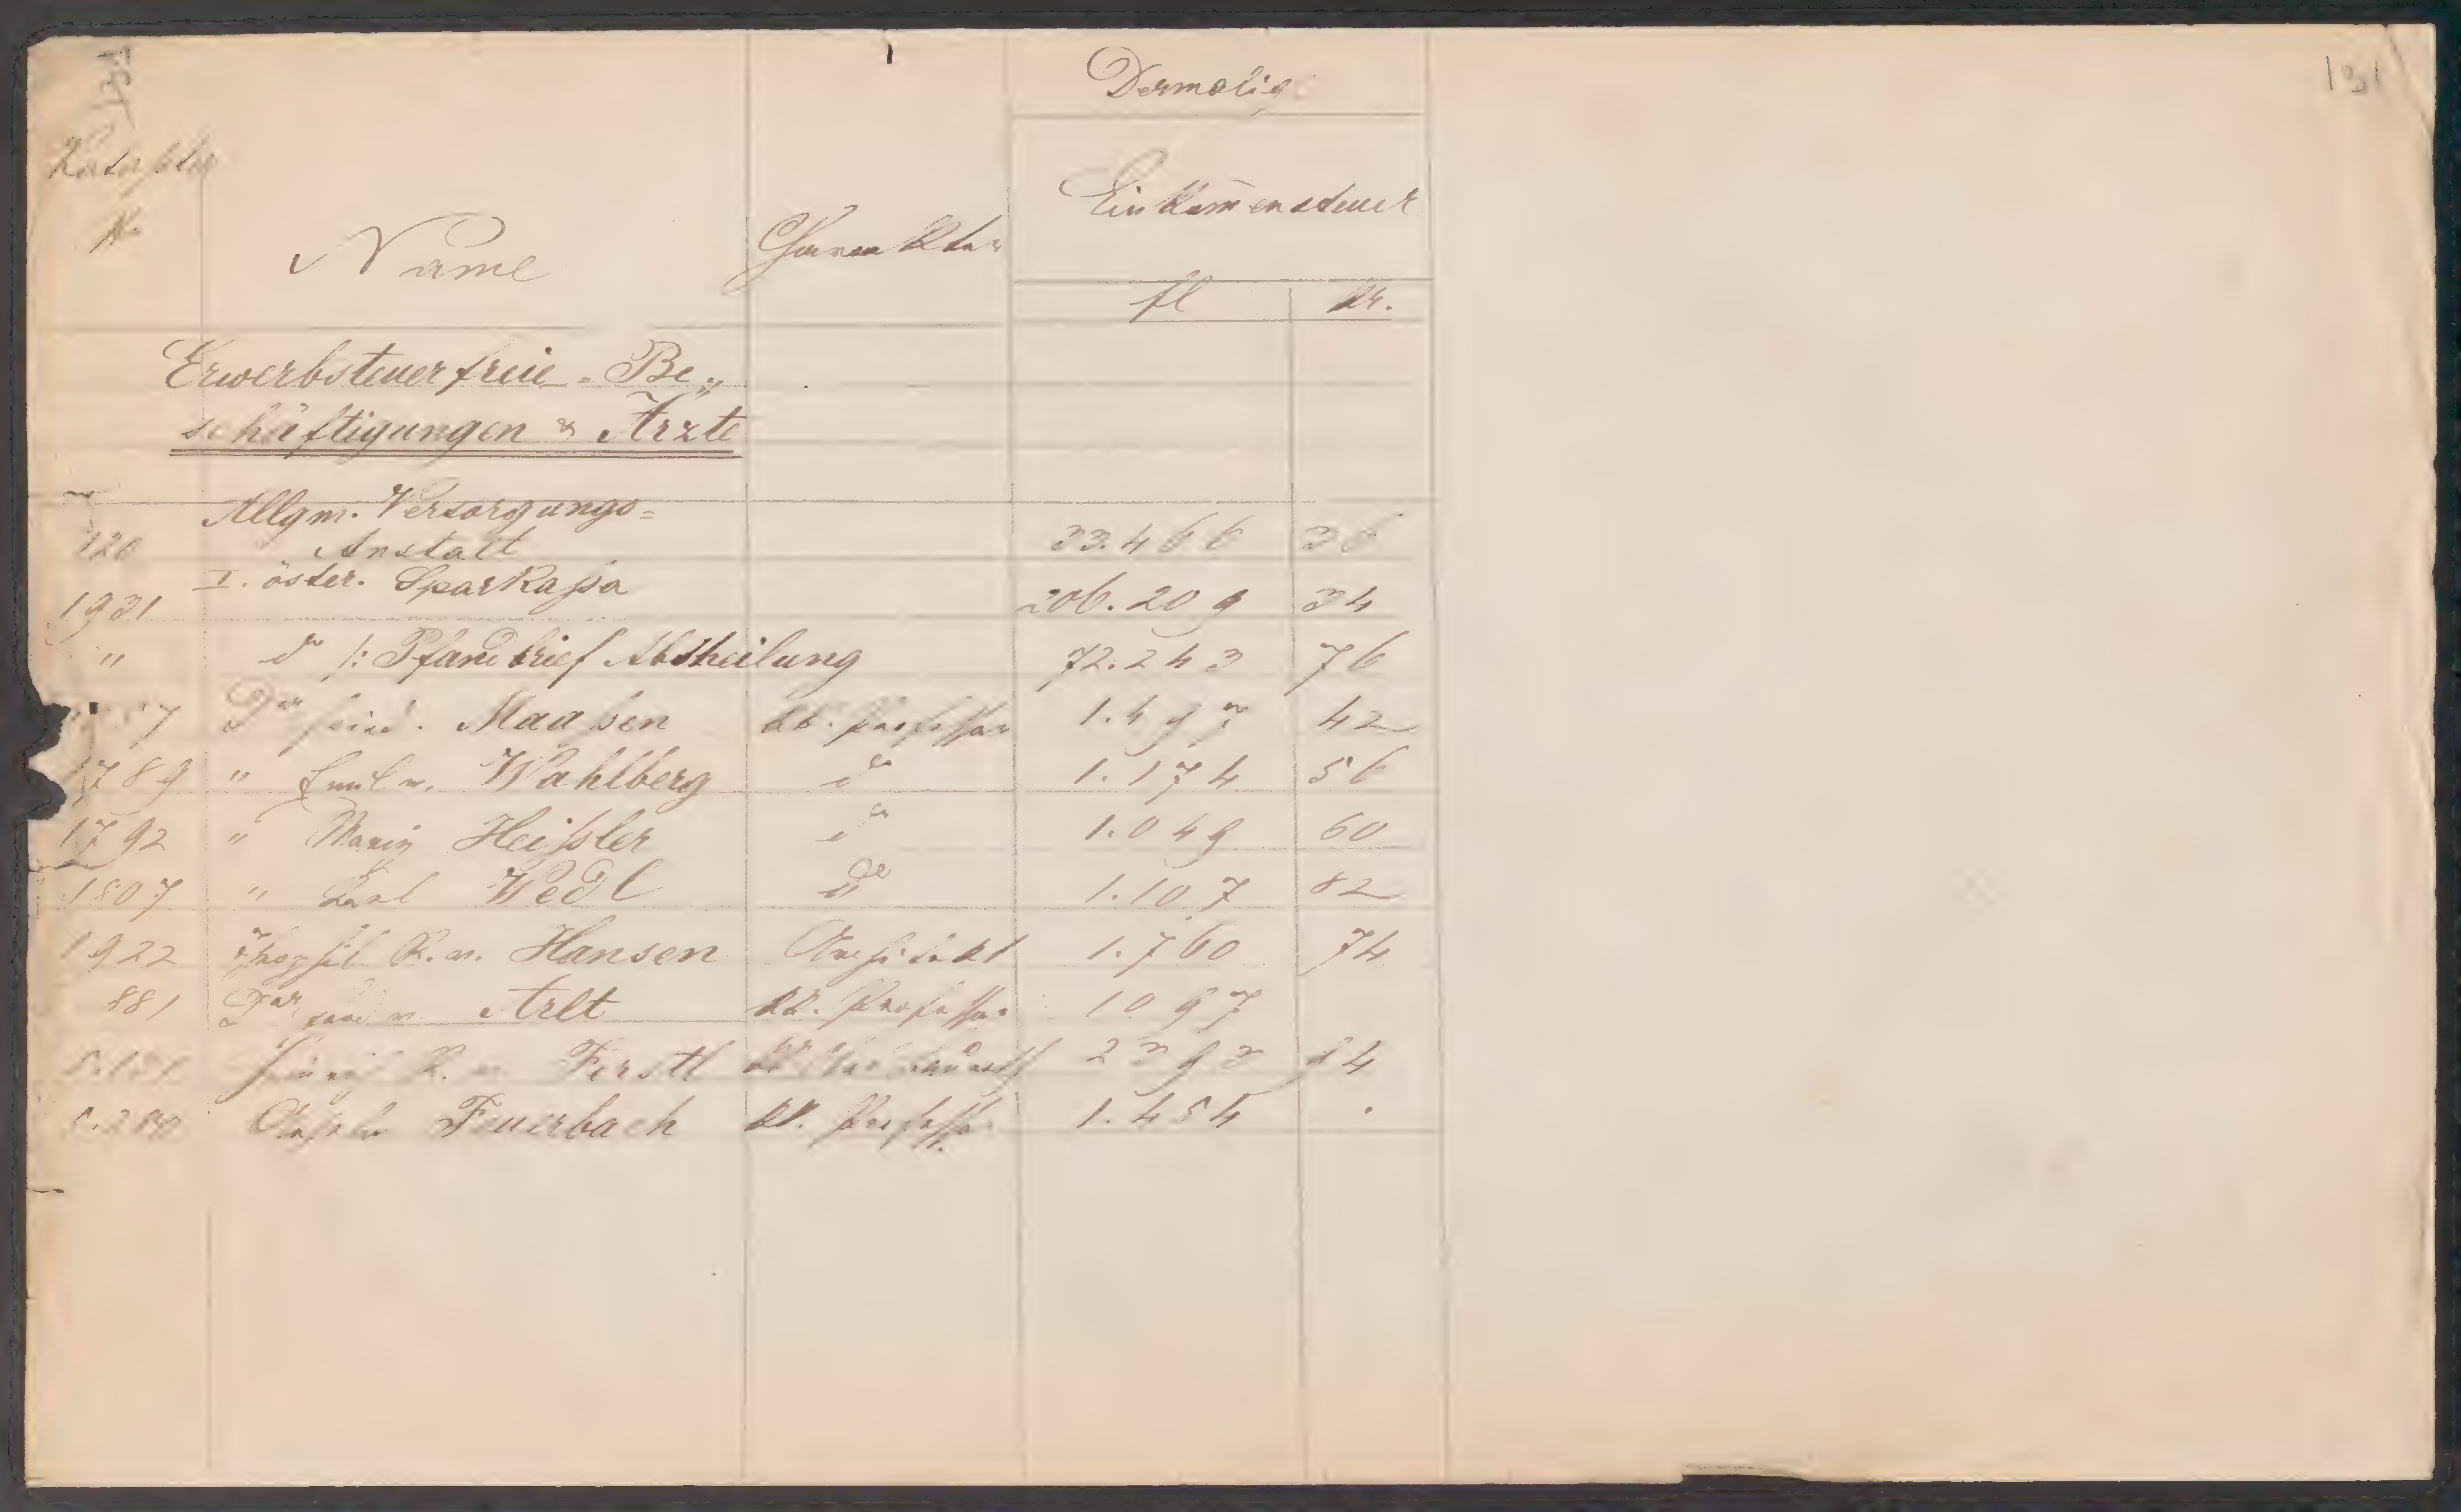 131
Dermalig
Kataster
No
Name
Charakter
Einkom̄ensteuer
fl kr.
Erwerbsteuerfreie = Be„
schäftigungen & Ärzte
Allgm. Versorgungs=
126 Anstalt 33.466 36
1931 I. öster. Sparkassa 206.209 34
" do /: Pfandbrief Abtheilung 72.243 76
7 Dor Fried. Maaßen kk. Professor 1.497 42
1789 " Emil v. Wahlberg do 1.174 56
1792 " Moriz Heißler do 1.049 60
1807 " Karl Wedl do 1.107 82
1922 Theophil R. v. Hansen Architekt 1.760 74
881 Dor Ferd v. Arlt kk. Professor 1097
Heinrich R. v. Ferstl kk Oberbaurath 2393 84
Anselm Feuerbach kk. Professor 1.454 .